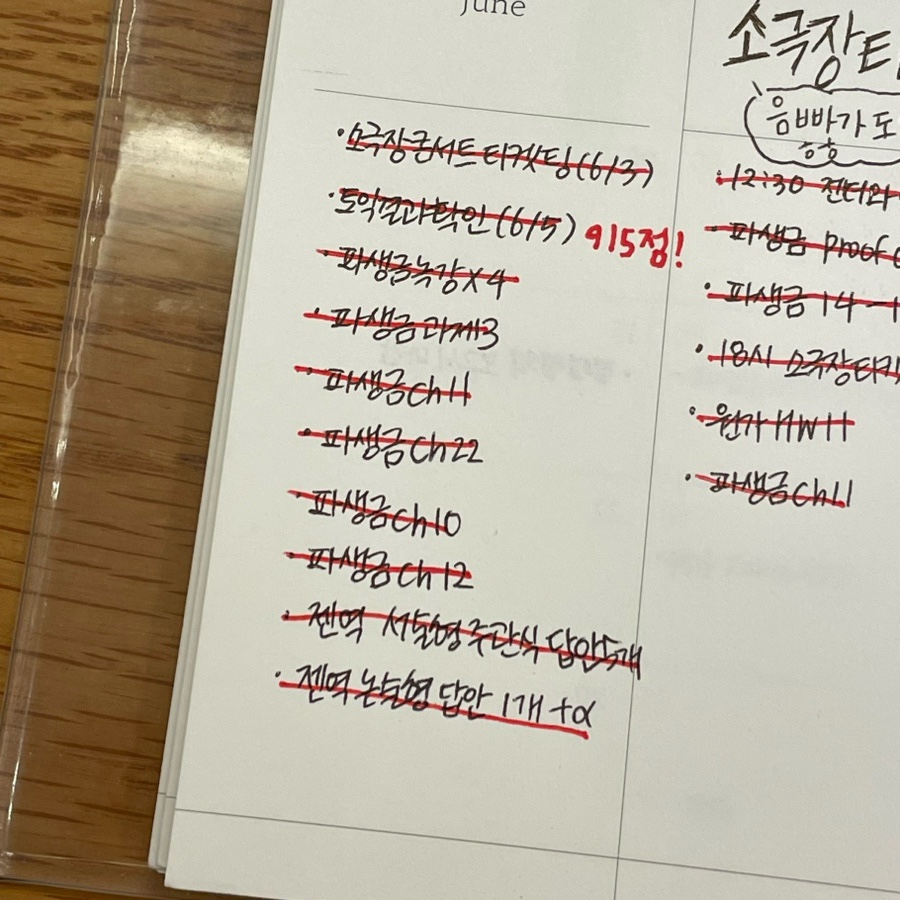 June
· 소극장콘서트 티켓팅 (6/3)
· 토익결과확인 (6/5) 915점!
· 파생금녹강X4
· 파생금과제3
· 파생금ch11
· 파생금ch22
· 파생금ch10
· 파생금ch12
· 젠역 서술형주관식 답안5개
· 젠역 논술형 답안 1개 +α
소극장티
음빠가 도
· 12:30 젼터와
· 파생금 proof
· 파생금 14 -
· 18시 소극장티켓
· 원가 HW11
· 파생금ch11